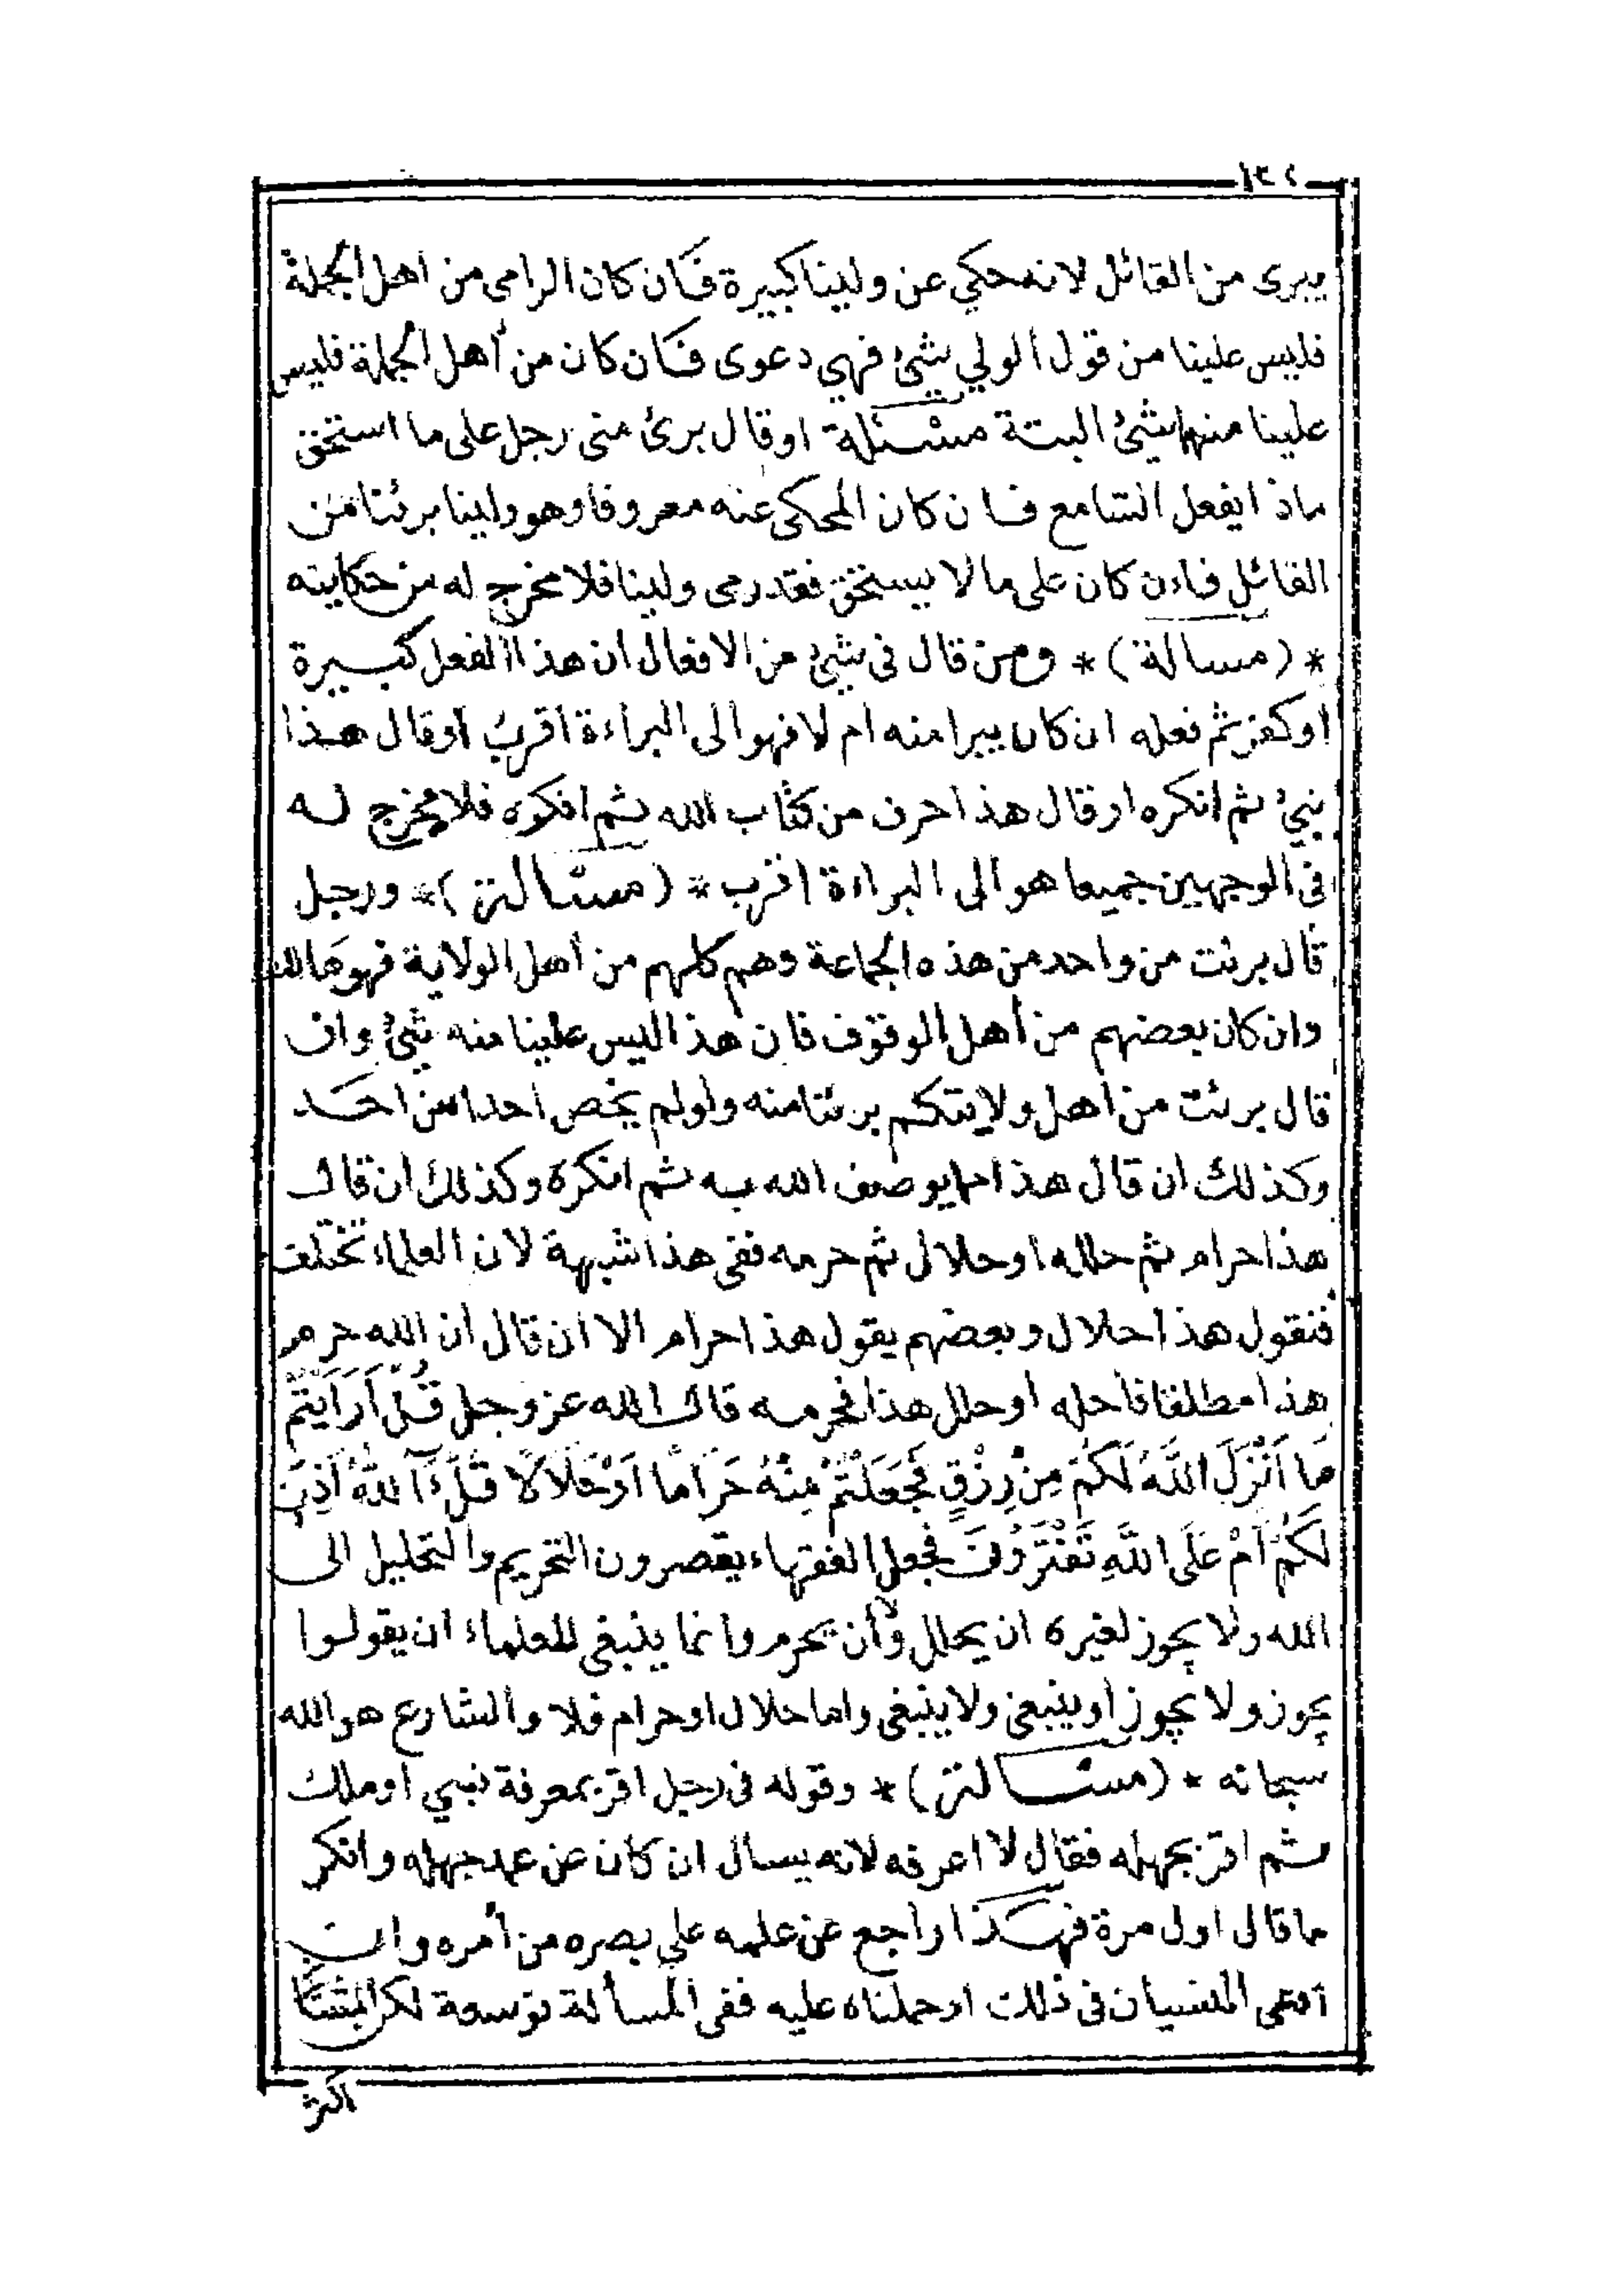 ١٣٤
يبرى من القائل لانه حكي عن ولينا كبيرة فان كان الرامى من اهل الجملة
فليس علينا من قول الولي شئ فهي دعوى فان كان من أهل الجملة فليس
علينا منهما شئ البتة مسئلة اوقال برئ منى رجل على ما استحق
ماذا يفعل السامع فان كان المحكى عنه معروفا وهو ولينا برئنا من
القائل فاءن كان على ما لا يستحق فقد رمى ولينا فلا مخرج له من حكايته
* (مسالة) * ومن قال فى شئ من الافعال ان هذا الفعل كبيرة
اوكفر ثم فعله ان كان يبرا منه ام لا فهو الى البراءة اقرب اوقال هذا
نبيُ ثم انكره اوقال هذا حرف من كتاب الله ثم انكره فلا مخرج له
فى الوجهين جميعا هو الى البراءة اقرب * (مسالة) * ورجل
قال برئت من واحد من هذه الجماعة وهم كلهم من أهل الولاية فهو هالك
وان كان بعضهم من أهل الوقوف فان هذا ليس علينا منه شئ وان
قال برئت من اهل ولايتكم برئنا منه ولولم يخص احدا من احد
وكذلك ان قال هذا مما يوصف الله به ثم انكره وكذلك ان قال
هذا حرام ثم حلله اوحلال ثم حرمه ففى هذا شبهة لان العلماء تختلف
فنقول هذا حلال وبعضهم يقول هذا حرام الا ان قال ان الله حرم
هذا مطلقا فاحله اوحلل هذا فحرمه قال الله عزوجل قُلْ اَرَاَيْتُمْ
مَا اَنْزَلَ اللَّهُ لَكُمْ مِنْ رِزْقٍ فَجَعَلْتُمْ مِنْهُ حَرَامًا وَحَلَالًا قُلْ ءَآللَّهُ اَذِنَ
لَكُمْ اَمْ عَلَى اللَّهِ تَفْتَرُونَ فجعل الفقهاء يقصرون التحريم والتحليل الى
الله ولا يجوز لغيره ان يحلل ولا أن يحرم وانما ينبغى للعلماء ان يقولوا
يجوز ولا يجوز أو ينبغى ولا ينبغى واما حلال اوحرام فلا والشارع هو الله
سبحانه * (مسالة) * وقوله فى رجل اقر بمعرفة نبي اوملك
ثم اقر بجهله فقال لا اعرفه لانه يسال ان كان عن عمد جهله وانكر
ما قال اول مرة فهذا راجع عن علمه على بصره من أمره وان
ادعى النسيان فى ذلك اوحملناه عليه ففى المسألة توسعة لكن المتنا
اكثر